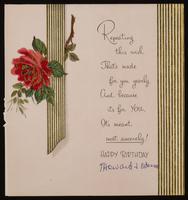 Repeating
this wish
That's made
for you yearly
And because
it's for YOU,
It's meant
most sincerely!
HAPPY BIRTHDAY